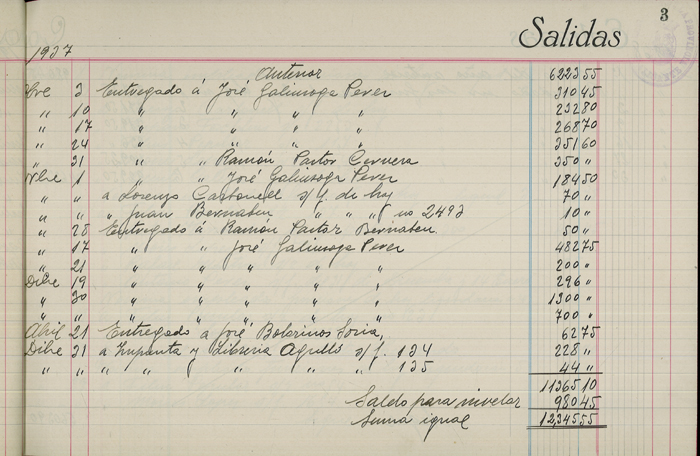 3
Salidas
1937
Anterior 6223 55
Obre 3 Entregado á José Galiusoga Pever 310 45
" 10 " " " " 232 80
" 17 " " " " 268 70
" 24 " " " " 351 60
" 31 " " Ramón Pastor Cervera 350 "
Nbre 1 " " José Galiusoga Pever 184 50
" " a Lorenzo Carbonell s/f. de hoy 70 "
" " " Juan Bernabeu " " " no 2493 10 "
" 25 Entregado á Ramón Pastor Bernabeu 50 "
" 17 " " José Galiusoga Pever 482 75
" 21 " " " " 200 "
Dibre 19 " " " " 296 "
" 30 " " " " 1300 "
" " " " " " 700 "
Abril 21 Entregado a José Bolarinos Soria, 62 75
Dibre 31 a Imprenta y Libreria Agulló s/f. 134 228 "
" " " " " " " 135 44 "
11365 10
Saldo para nivelar 980 45
Suma igual 12,345 55